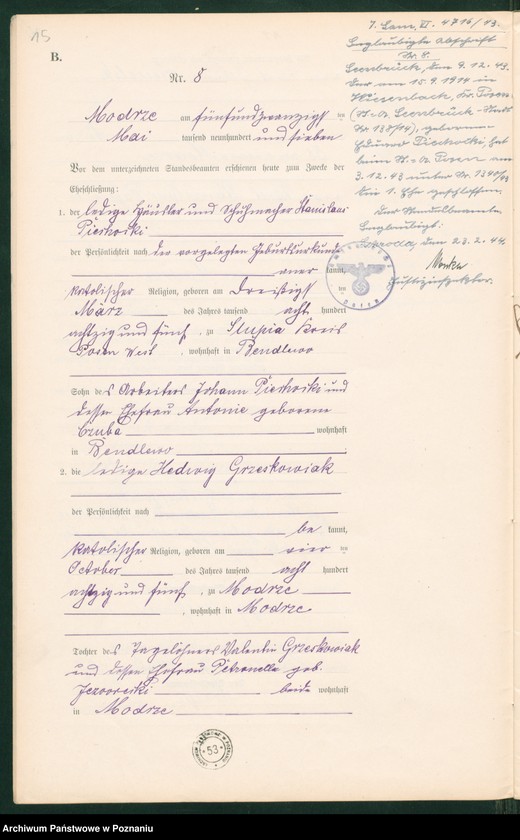 15
B.
Nr. 8
Modrze am fünfundzwanzigsten
Mai tausend neunhundert und sieben
Vor dem unterzeichneten Standesbeamten erschienen heute zum Zwecke der
Eheschließung:
1. der ledige Häusler und Schuhmacher Stanislaus
der Persönlichkeit nach des vorgelegten Geburtsurkunde
aner kannt,
katolischer Religion, geboren am dreißigsten
März des Jahres tausend acht hundert
achtzig und fünf, zu Slupia Kreis
Posen West, wohnhaft in Bendlewo
Sohn des Arbeiters Johann und
dessen Ehefrau Antonie geborenen
Czuba wohnhaft
in Bendlewo
2. die ledige Hedwig Grzeskowiak
der Persönlichkeit nach
be kannt,
katolischer Religion, geboren am vier ten
October des Jahres tausend acht hundert
achtzig und fünf, zu Modrze
, wohnhaft in Modrze
Tochter des Tagelöhners Valentin Grzeskowiak
und dessen Ehefrau Petronella geb.
beide wohnhaft
in Modrze
Beglaubigte Abschrift
den 9. 12. 43.
Der am 15. 9. 1914 in
geborene
hat
beim St. A. Posen am
3. 12. 43 unter Nr.
die 1. Ehe geschlossen.
Der Standesbeamte
Beglaubigt:
den 23. 2. 44
53
Archiwum Państwowe w Poznaniu